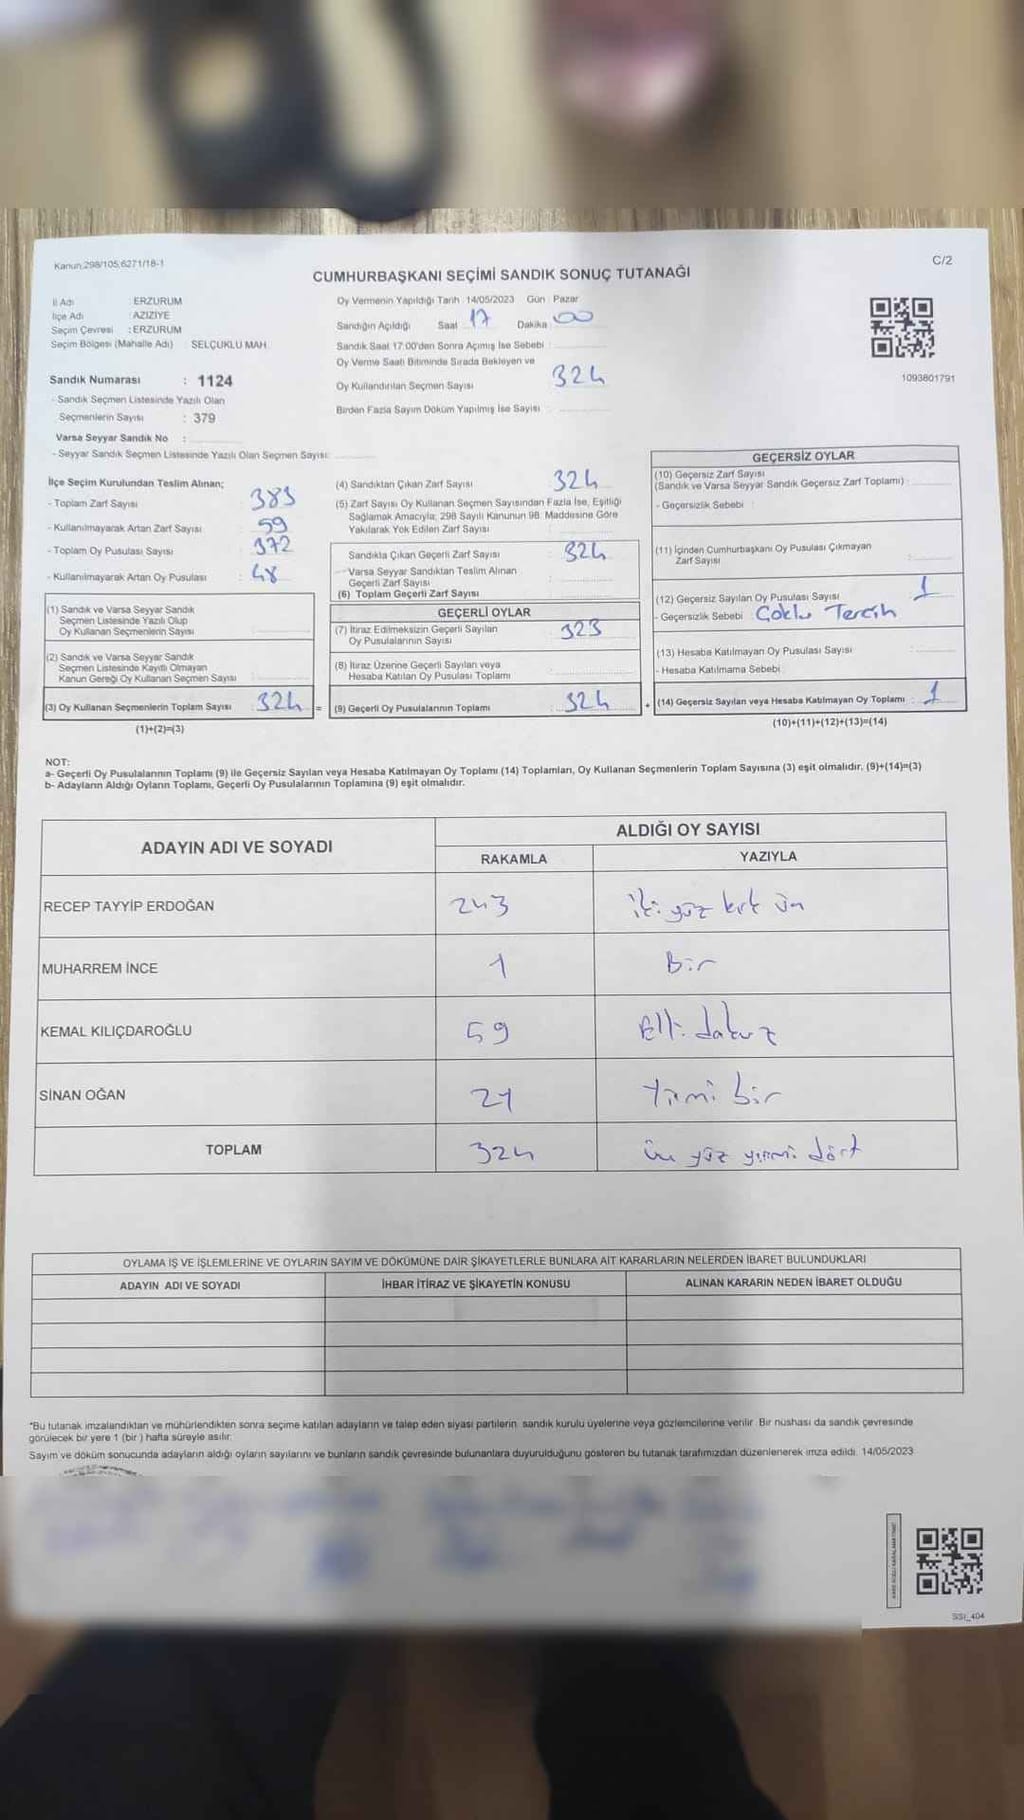 Kanun:298/105,6271/18-1
C/2
CUMHURBAŞKANI SEÇİMİ SANDIK SONUÇ TUTANAĞI
İl Adı : ERZURUM
İlçe Adı : AZİZİYE
Seçim Çevresi : ERZURUM
Seçim Bölgesi (Mahalle Adı) : SELÇUKLU MAH.
Oy Vermenin Yapıldığı Tarih : 14/05/2023 Gün : Pazar
Sandığın Açıldığı Saat 17 Dakika 00
Sandık Saat 17:00'den Sonra Açımış İse Sebebi :
Oy Verme Saati Bitiminde Sırada Bekleyen ve
Oy Kullandırılan Seçmen Sayısı 324
Birden Fazla Sayım Döküm Yapılmış İse Sayısı :
1093801791
Sandık Numarası : 1124
- Sandık Seçmen Listesinde Yazılı Olan
Seçmenlerin Sayısı : 379
Varsa Seyyar Sandık No :
- Seyyar Sandık Seçmen Listesinde Yazılı Olan Seçmen Sayısı:
İlçe Seçim Kurulundan Teslim Alınan;
- Toplam Zarf Sayısı 383
- Kullanılmayarak Artan Zarf Sayısı 59
- Toplam Oy Pusulası Sayısı 372
- Kullanılmayarak Artan Oy Pusulası : 48
(1) Sandık ve Varsa Seyyar Sandık
Seçmen Listesinde Yazılı Olup
Oy Kullanan Seçmenlerin Sayısı
(2) Sandık ve Varsa Seyyar Sandık
Seçmen Listesinde Kayıtlı Olmayan
Kanun Gereği Oy Kullanan Seçmen Sayısı
(3) Oy Kullanan Seçmenlerin Toplam Sayısı : 324 =
(1)+(2)=(3)
(4) Sandıktan Çıkan Zarf Sayısı 324
(5) Zarf Sayısı Oy Kullanan Seçmen Sayısından Fazla İse, Eşitliği
Sağlamak Amacıyla, 298 Sayılı Kanunun 98. Maddesine Göre
Yakılarak Yok Edilen Zarf Sayısı
Sandıkta Çıkan Geçerli Zarf Sayısı 324
Varsa Seyyar Sandıktan Teslim Alınan
Geçerli Zarf Sayısı
(6) Toplam Geçerli Zarf Sayısı
GEÇERLİ OYLAR
(7) İtiraz Edilmeksizin Geçerli Sayılan
Oy Pusulalarının Sayısı 323
(8) İtiraz Üzerine Geçerli Sayılan veya
Hesaba Katılan Oy Pusulası Toplamı
(9) Geçerli Oy Pusulalarının Toplamı : 324 +
GEÇERSİZ OYLAR
(10) Geçersiz Zarf Sayısı
(Sandık ve Varsa Seyyar Sandık Geçersiz Zarf Toplamı) :
- Geçersizlik Sebebi :
(11) İçinden Cumhurbaşkanı Oy Pusulası Çıkmayan
Zarf Sayısı :
(12) Geçersiz Sayılan Oy Pusulası Sayısı 1
- Geçersizlik Sebebi : Çoklu Tercih
(13) Hesaba Katılmayan Oy Pusulası Sayısı :
- Hesaba Katılmama Sebebi :
(14) Geçersiz Sayılan veya Hesaba Katılmayan Oy Toplamı : 1
(10)+(11)+(12)+(13)=(14)
NOT:
a- Geçerli Oy Pusulalarının Toplamı (9) ile Geçersiz Sayılan veya Hesaba Katılmayan Oy Toplamı (14) Toplamları, Oy Kullanan Seçmenlerin Toplam Sayısına (3) eşit olmalıdır. (9)+(14)=(3)
b- Adayların Aldığı Oyların Toplamı, Geçerli Oy Pusulalarının Toplamına (9) eşit olmalıdır.
ADAYIN ADI VE SOYADI
ALDIĞI OY SAYISI
RAKAMLA YAZIYLA
RECEP TAYYİP ERDOĞAN 243 iki yüz kırk üç
MUHARREM İNCE 1 Bir
KEMAL KILIÇDAROĞLU 59 Elli dokuz
SİNAN OĞAN 21 Yirmi bir
TOPLAM 324 üç yüz yirmi dört
OYLAMA İŞ VE İŞLEMLERİNE VE OYLARIN SAYIM VE DÖKÜMÜNE DAİR ŞİKAYETLERLE BUNLARA AİT KARARLARIN NELERDEN İBARET BULUNDUKLARI
ADAYIN ADI VE SOYADI İHBAR İTİRAZ VE ŞİKAYETİN KONUSU ALINAN KARARIN NEDEN İBARET OLDUĞU
*Bu tutanak imzalandıktan ve mühürlendikten sonra seçime katılan adayların ve talep eden siyasi partilerin sandık kurulu üyelerine veya gözlemcilerine verilir. Bir nüshası da sandık çevresinde
görülecek bir yere 1 (bir) hafta süreyle asılır.
Sayım ve döküm sonucunda adayların aldığı oyların sayılarını ve bunların sandık çevresinde bulunanlara duyurulduğunu gösteren bu tutanak tarafımızdan düzenlenerek imza edildi. 14/05/2023
SSI_404